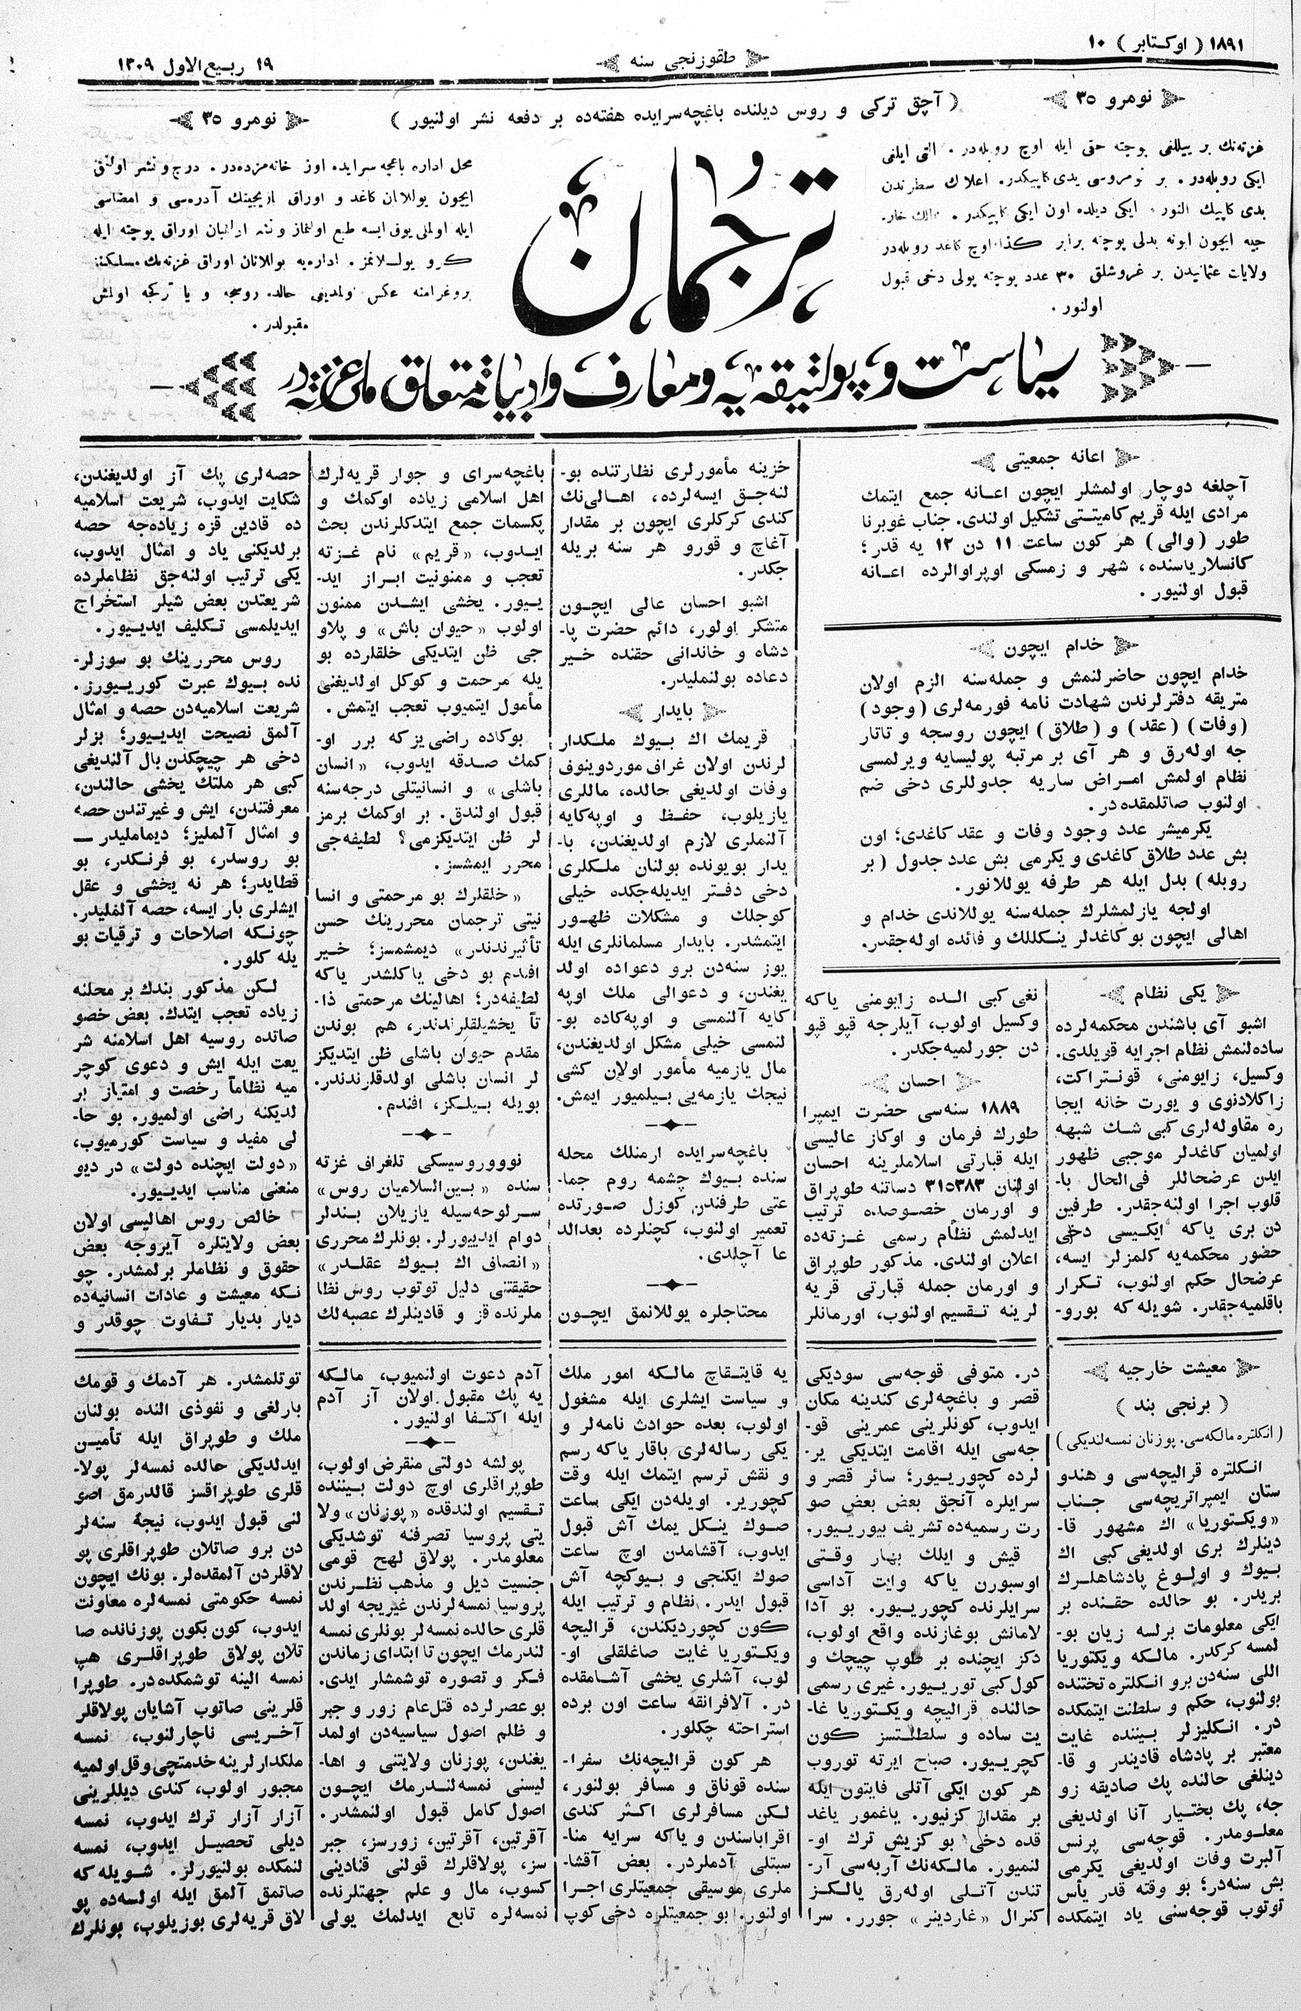 ١٨٩١ ( اوكتابر ) ١٠
طقوزنجی سنه
١٩ ربیع الاول ١٣٠٩
نومرو ٣٥
( آچق تركی و روس دیلنده باغچه سرایده هفته ده بر دفعه نشر اولنیور )
نومرو ٣٥
غزته نك بر ییللغی پوچته حقی ایله اوچ روبله در . التی ایلغی
ایكی روبله در . بر نومروسی یدی كاپیكدر . اعلاك سطرندن
یدی كاپیك النور . ایكی دیلده اون ایكی كاپیكدر . ممالك خار.
جیه ایچون ابونه بدلی پوچته برابر كذا اوچ كاغد روبله در
ولایات عثمانیدن بر غروشلق ٣٠ عدد پوچته پولی دخی قبول
اولنور .
محل اداره باغچه سرایده اوز خانه مزده در . درج و نشر اولنق
ایچون یوللاان كاغد و اوراق یازیجینك آدره سی و امضاسی
ایله اولملی یوق ایسه طبع اولنماز و نشر اولنمیان اوراق پوچته ایله
كرو یوللانمز . اداره یه یوللانان اوراق غزته مك مسلكنه
پروغرامنه عكس اولمدیغی حالده روسجه و یا تركجه اولمش
مقبولدر .
ترجمان
سیاست و پولتیقه یه و معارف و ادبیاته متعلق ملی غزته در
اعانه جمعیتی
آچلغه دوچار اولمشلر ایچون اعانه جمع ایتمك
مرادی ایله قریم كامیتتی تشكیل اولندی. جناب غوبرنا
طور (والی) هر كون ساعت ١١ دن ١٢ یه قدر؛
كانسلاریاسنده، شهر و زمسكی اوپراوالرده اعانه
قبول اولنیور .
خدام ایچون
خدام ایچون حاضرلنمش و جمله سنه الزم اولان
متریقه دفترلرندن شهادت نامه فورمه لری (وجود)
(وفات) (عقد) و (طلاق) ایچون روسجه و تاتار
جه اوله رق و هر آی بر مرتبه پولیسایه ویرلمسی
نظام اولمش امراض ساریه جدوللری دخی ضم
اولنوب صاتلمقده در.
یكرمیشر عدد وجود وفات و عقد كاغدی؛ اون
بش عدد طلاق كاغدی و یكرمی بش عدد جدول (بر
روبله) بدل ایله هر طرفه یوللانور.
اولجه یازلمشلرك جمله سنه یوللاندی خدام و
اهالی ایچون بو كاغدلر ینكللك و فائده اوله جقدر.
یكی نظام
اشبو آی باشندن محكمه لرده
ساده لنمش نظام اجرایه قویلدی.
وكسیل، زایومنی، قونتراكت،
زاكلادنوی و یورت خانه ایجا
ره مقاوله لری كبی شك شبهه
اولمیان كاغدلر موجبی ظهور
ایدن عرضحاللر فی الحال با-
قلوب اجرا اولنه جقدر. طرفین
دن بری یاكه ایكیسی دخی
حضور محكمه یه كلمزلر ایسه،
عرضحال حكم اولنوب، تكرار
باقلمیه جقدر. شویله كه بورو-
نغی كبی الده زایومنی یاكه
وكسیل اولوب، آیلرجه قپو قپو
دن جورلمیه جكدر.
احسان
١٨٨٩ سنه سی حضرت ایمپرا
طورك فرمان و اوكاز عالیسی
ایله قبارتی اسلاملرینه احسان
اولنان ٣١٥٣٨٣ دساتنه طوپراق
و اورمان خصوصده ترتیب
ایدلمش نظام رسمی غزته ده
اعلان اولندی. مذكور طوپراق
و اورمان جمله قبارتی قریه
لرینه تقسیم اولنوب، اورمانلر
خزینه مأمورلری نظارتنده بو-
لنه جق ایسه لرده، اهالی نك
كندی كركلری ایچون بر مقدار
آغاچ و قورو هر سنه بریله
جكدر.
اشبو احسان عالی ایچون
متشكر اولور، دائم حضرت پا-
دشاه و خاندانی حقنده خیر
دعاده بولنملیدر.
بایدار
قریمك اك بیوك ملكدار
لرندن اولان غراف موردوینوف
وفات اولدیغی حالده، ماللری
یازیلوب، حفظ و اوپه كایه
آلنملری لازم اولدیغندن، با-
یدار بویوننده بولنان ملكلری
دخی دفتر ایدیله جكده خیلی
كوجلك و مشكلات ظهور
ایتمشدر. بایدار مسلمانلری ایله
یوز سنه دن برو دعواده اولد
یغندن، و دعوالی ملك اوپه
كایه آلنمسی و اوپه كاده بو-
لنمسی خیلی مشكل اولدیغندن،
مال یازمیه مأمور اولان كشی
نیجك یازمه یی بیلمیور ایمش.
باغچه سرایده ارمنلك محله
سنده بیوك چشمه روم جما-
عتی طرفندن كوزل صورتده
تعمیر اولنوب، كچنلرده بعدالد
عا آچلدی.
محتاجلره یوللانمق ایچون
باغچه سرای و جوار قریه لرك
اهل اسلامی زیاده اوكمك و
پكسمات جمع ایتدكلرندن بحث
ایدوب، «قریم» نام غزته
تعجب و ممنونیت ابراز اید-
ییور. یخشی ایشدن ممنون
اولوب «حیوان باش» و پلاو
جی ظن ایتدیكی خلقلرده بو
یله مرحمت و كوكل اولدیغنی
مأمول ایتمیوب تعجب ایتمش.
بوكاده راضی یزكه برر او-
كمك صدقه ایدوب، «انسان
باشلی» و انسانیتلی درجه سنه
قبول اولندق. بر اوكمك برمز
لر ظن ایتدیكزمی؟ لطیفه جی
محرر ایمشسز.
«خلقلرك بو مرحمتی و انسا
نیتی ترجمان محررینك حسن
تأثیرندندر» دیمشمسز؛ خیر
افندم بو دخی یاكلشدر یاكه
لطیفه در؛ اهالینك مرحمتی ذا-
تاً یخشیلقلرندندر، هم بوندن
مقدم حیوان باشلی ظن ایتدیكز
لر انسان باشلی اولدقلرندندر.
بویله بیلكز، افندم.
نووو روسیسكی تلغراف غزته
سنده «بین السلامیان روس»
سرلوحه سیله یازیلان بندلر
دوام ایدییورلر. بونلرك محرری
«انصاف اك بیوك عقلدر»
حقیقتنی دلیل توتوب روش نظا
ملرنده قز و قادینلرك عصبه لك
حصه لری پك آز اولدیغندن،
شكایت ایدوب، شریعت اسلامیه
ده قادین قزه زیاده جه حصه
برلدیكنی یاد و امثال ایدوب،
یكی ترتیب اولنه جق نظاملرده
شریعتدن بعض شیلر استخراج
ایدیلمسی تكلیف ایدییور.
روس محررینك بو سوزلر-
نده بیوك عبرت كورییورز.
شریعت اسلامیه دن حصه و امثال
آلمق نصیحت ایدییور؛ بزلر
دخی هر چیچكدن بال آلندیغی
كبی هر ملتك یخشی حالندن،
معرفتندن، ایش و غیرتندن حصه
و امثال آلملیز؛ دیمامـلیدر —
بو روسدر، بو فرنكدر، بو
قطایدر؛ هر نه یخشی و عقل
ایشلری بار ایسه، حصه آلملیدر.
چونكه اصلاحات و ترقیات بو
یله كلور.
لكن مذكور بندك بر محلنه
زیاده تعجب ایتدك. بعض خصو
صاتده روسیه اهل اسلامنه شر
یعت ایله ایش و دعوی كوچر
میه نظاماً رخصت و امتیاز بر
لدیكنه راضی اولمیور. بو حا-
لی مفید و سیاست كورمیوب،
«دولت ایچنده دولت» در دیو
منعنی مناسب ایدییور.
خالص روس اهالیسی اولان
بعض ولایتلره آیروجه بعض
حقوق و نظاملر برلمشدر. چو
نكه معیشت و عادات انسانیه ده
دیار بدیار تفاوت چوقدر و
معیشت خارجیه
( برنجی بند )
( انكلتره مالكه سی. پوزنان نمسه لندیكی )
انكلتره قرالیچه سی و هندو
ستان ایمپراتریچه سی جناب
«ویكتوریا» اك مشهور قا-
دینلرك بری اولدیغی كبی اك
بیوك و اولوغ پادشاهلرك
بریدر. بو حالده حقنده بر
ایكی معلومات برلسه زیان بو-
لمسه كركدر. مالكه ویكتوریا
اللی سنه دن برو انكلتره تختنده
بولنوب، حكم و سلطنت ایتمكده
در. انكلیزلر بیننده غایت
معتبر بر پادشاه قادیندر و قا-
دینلغی حالنده پك صادیقه زو
جه، پك بختیار آنا اولدیغی
معلومدر. قوجه سی پرنس
آلبرت وفات اولدیغی یكرمی
بش سنه در؛ بو وقته قدر یأس
توتوب قوجه سنی یاد ایتمكده
در. متوفی قوجه سی سودیكی
قصر و باغچه لری كندینه مكان
ایدوب، كونلرینی عمرینی قو-
جه سی ایله اقامت ایتدیكی یر-
لرده كچورییور؛ سائر قصر و
سرایلره آنجق بعض بعض صو
رت رسمیه ده تشریف بیورییور.
قیش و ایلك بهار وقتی
اوسبورن یاكه وایت آداسی
سرایلرنده كچورییور. بو آدا
لامانش بوغازنده واقع اولوب،
دكز ایچنده بر طوپ چیچك و
كول كبی تورییور. غیری رسمی
حالنده قرالیچه ویكتوریا غا-
یت ساده و سلطلتسز كون
كچرییور. صباح ایرته توروب
هر كون ایكی آتلی فایتون ایله
بر مقدار كزنیور. یاغمور یاغد
قده دخی بو كزیش ترك او-
لنمیور. مالكه نك آربه سی آر-
تندن آتلی اوله رق یالكز
كنرال «غاردینر» جورر. سرا
یه قایتقاچ مالكه امور ملك
و سیاست ایشلری ایله مشغول
اولوب، بعده حوادث نامه لر و
یكی رساله لری باقار یاكه رسم
و نقش ترسم ایتمك ایله وقت
كچوریر. اویله دن ایكی ساعت
صوك ینكل یمك آش قبول
ایدوب، آقشامدن اوچ ساعت
صوك ایكنجی و بیوكچه آش
قبول ایدر. نظام و ترتیب ایله
كون كچوردیكندن، قرالیچه
ویكتوریا غایت صاغلقلی او-
لوب، آشلری یخشی آشامقده
در. آلافرانقه ساعت اون برده
استراحته چكلور.
هر كون قرالیچه نك سفرا-
سنده قوناق و مسافر بولنور،
لكن مسافرلری اكثر كندی
اقراباسندن و یاكه سرایه منا-
سبتلی آدملردر. بعض آقشا-
ملری موسیقی جمعیتلری اجرا
اولنور. بو جمعیتلره دخی كوپ
آدم دعوت اولنمیوب، مالكه
یه پك مقبول اولان آز آدم
ایله اكتفا اولنیور.
پولشه دولتی منقرض اولوب،
طوپراقلری اوچ دولت بیننده
تقسیم اولندقده «پوزنان» ولا
یتی پروسیا تصرفنه توشدیكی
معلومدر. پولاق لهج قومی
جنسیت دیل و مذهب نظرندن
پروسیا نمسه لرندن غیریجه اولد
قلری حالده نمسه لر بونلری نمسه
لندرمك ایچون تا ابتدای زماندن
فكر و تصوره توشمشلر ایدی.
بو عصرلرده قتل عام زور و جبر
و ظلم اصول سیاسیه دن اولمد
یغندن، پوزنان ولایتنی و اها-
لیسنی نمسه لندرمك ایچون
اصول كامل قبول اولنمشدر.
آقرتین، آقرتین، زورسز، جبر
سز، پولاقلرك قولنی قنادینی
كسوب، مال و علم جهتلرنده
نمسه لره تابع ایدلمك یولی
توتلمشدر. هر آدمك و قومك
بارلغی و نفوذی النده بولنان
ملك و طوپراق ایله تأمین
ایدلدیكی حالده نمسه لر پولا-
قلری طوپراقسز قالدرمق اصو
لنی قبول ایدوب، نیجه سنه لر
دن برو صاتلان طوپراقلری پو
لاقلردن آلمقده لر. بونك ایچون
نمسه حكومتی نمسه لره معاونت
ایدوب، كون بكون پوزنانده صا
تلان پولاق طوپراقلری هپ
نمسه الینه توشمكده در. طوپرا
قلرینی صاتوب آشایان پولاقلر
آخریسی ناچارلنوب، نمسه
ملكدارلرینه خدمتچی و قل اولمیه
مجبور اولوب، كندی دیللرینی
آزار آزار ترك ایدوب، نمسه
دیلی تحصیل ایدوب، نمسه
لنمكده بولنیورلر. شویله كه
صاتمق آلمق ایله اولسه ده پو
لاق قریه لری بوزیلوب، بونلرك